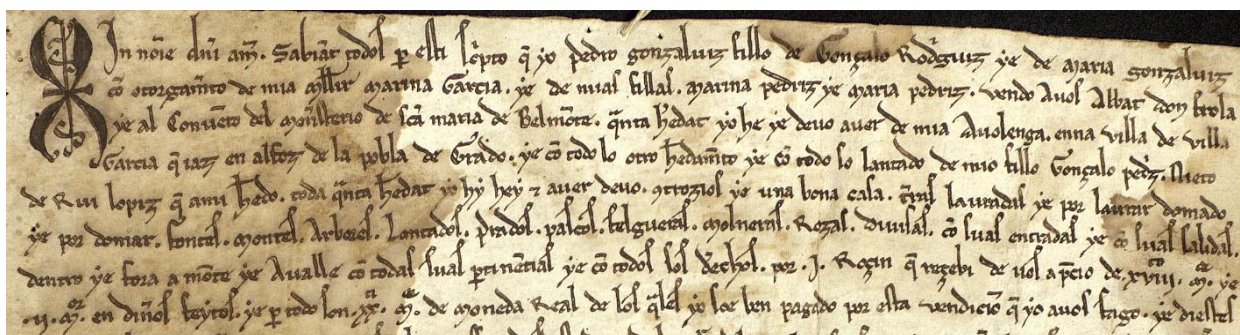 In nõie dñi am̃. Sabiãt todos ꝑ esti scͥpto q̃ yo pedro gonzaluiz fillo de Gonçalo Rodg̃uiz ye de maria gonzaluiz
cõ otorgam̃to de mia mllir marina Garcia. ye de mias fillas. marina pedriz ye maria pedriz. vendo Auos Abbat don frola
ye al Conuẽto del mon̄sterio de sc̃a maria de Belmõte. q̃nta h̃edat yo he ye deuo auer de mia Auolenga. enna villa de villa
Garcia q̃ iaz en alfoz de la pobla de Grado. ye cõ todo lo otro h̃edam̃to ye cõ todo lo lantado de mio fillo Gonçalo pedz̃. Nieto
de Rui lopiz q̃ ami h̃edo. toda q̃nta h̃edat yo hy hey ⁊ auer deuo. ye una bona casa. t̃ras lauradas ye por laurar domado
ye por domar. fontes. montes. Arbores. Lantados. prados. pascos. felgueras. molneras. Rozas. Diuisas. cõ suas entradas ye cõ suas salidas.
dentro ye fora a mõte ye Aualle cõ todas suas ꝑtinẽtias ye cõ todos sos derechos. por .I. Rozin q̃ reçebi de uos ap̃cio de .xviii. m̃. ye
.ii. m̃. en din̄os feytos. ye ꝑ todo son .xx. m̃. de moneda Real de los q̃les yo soe ben pagado por esta vendiciõ q̃ yo auos fago. ye diestes